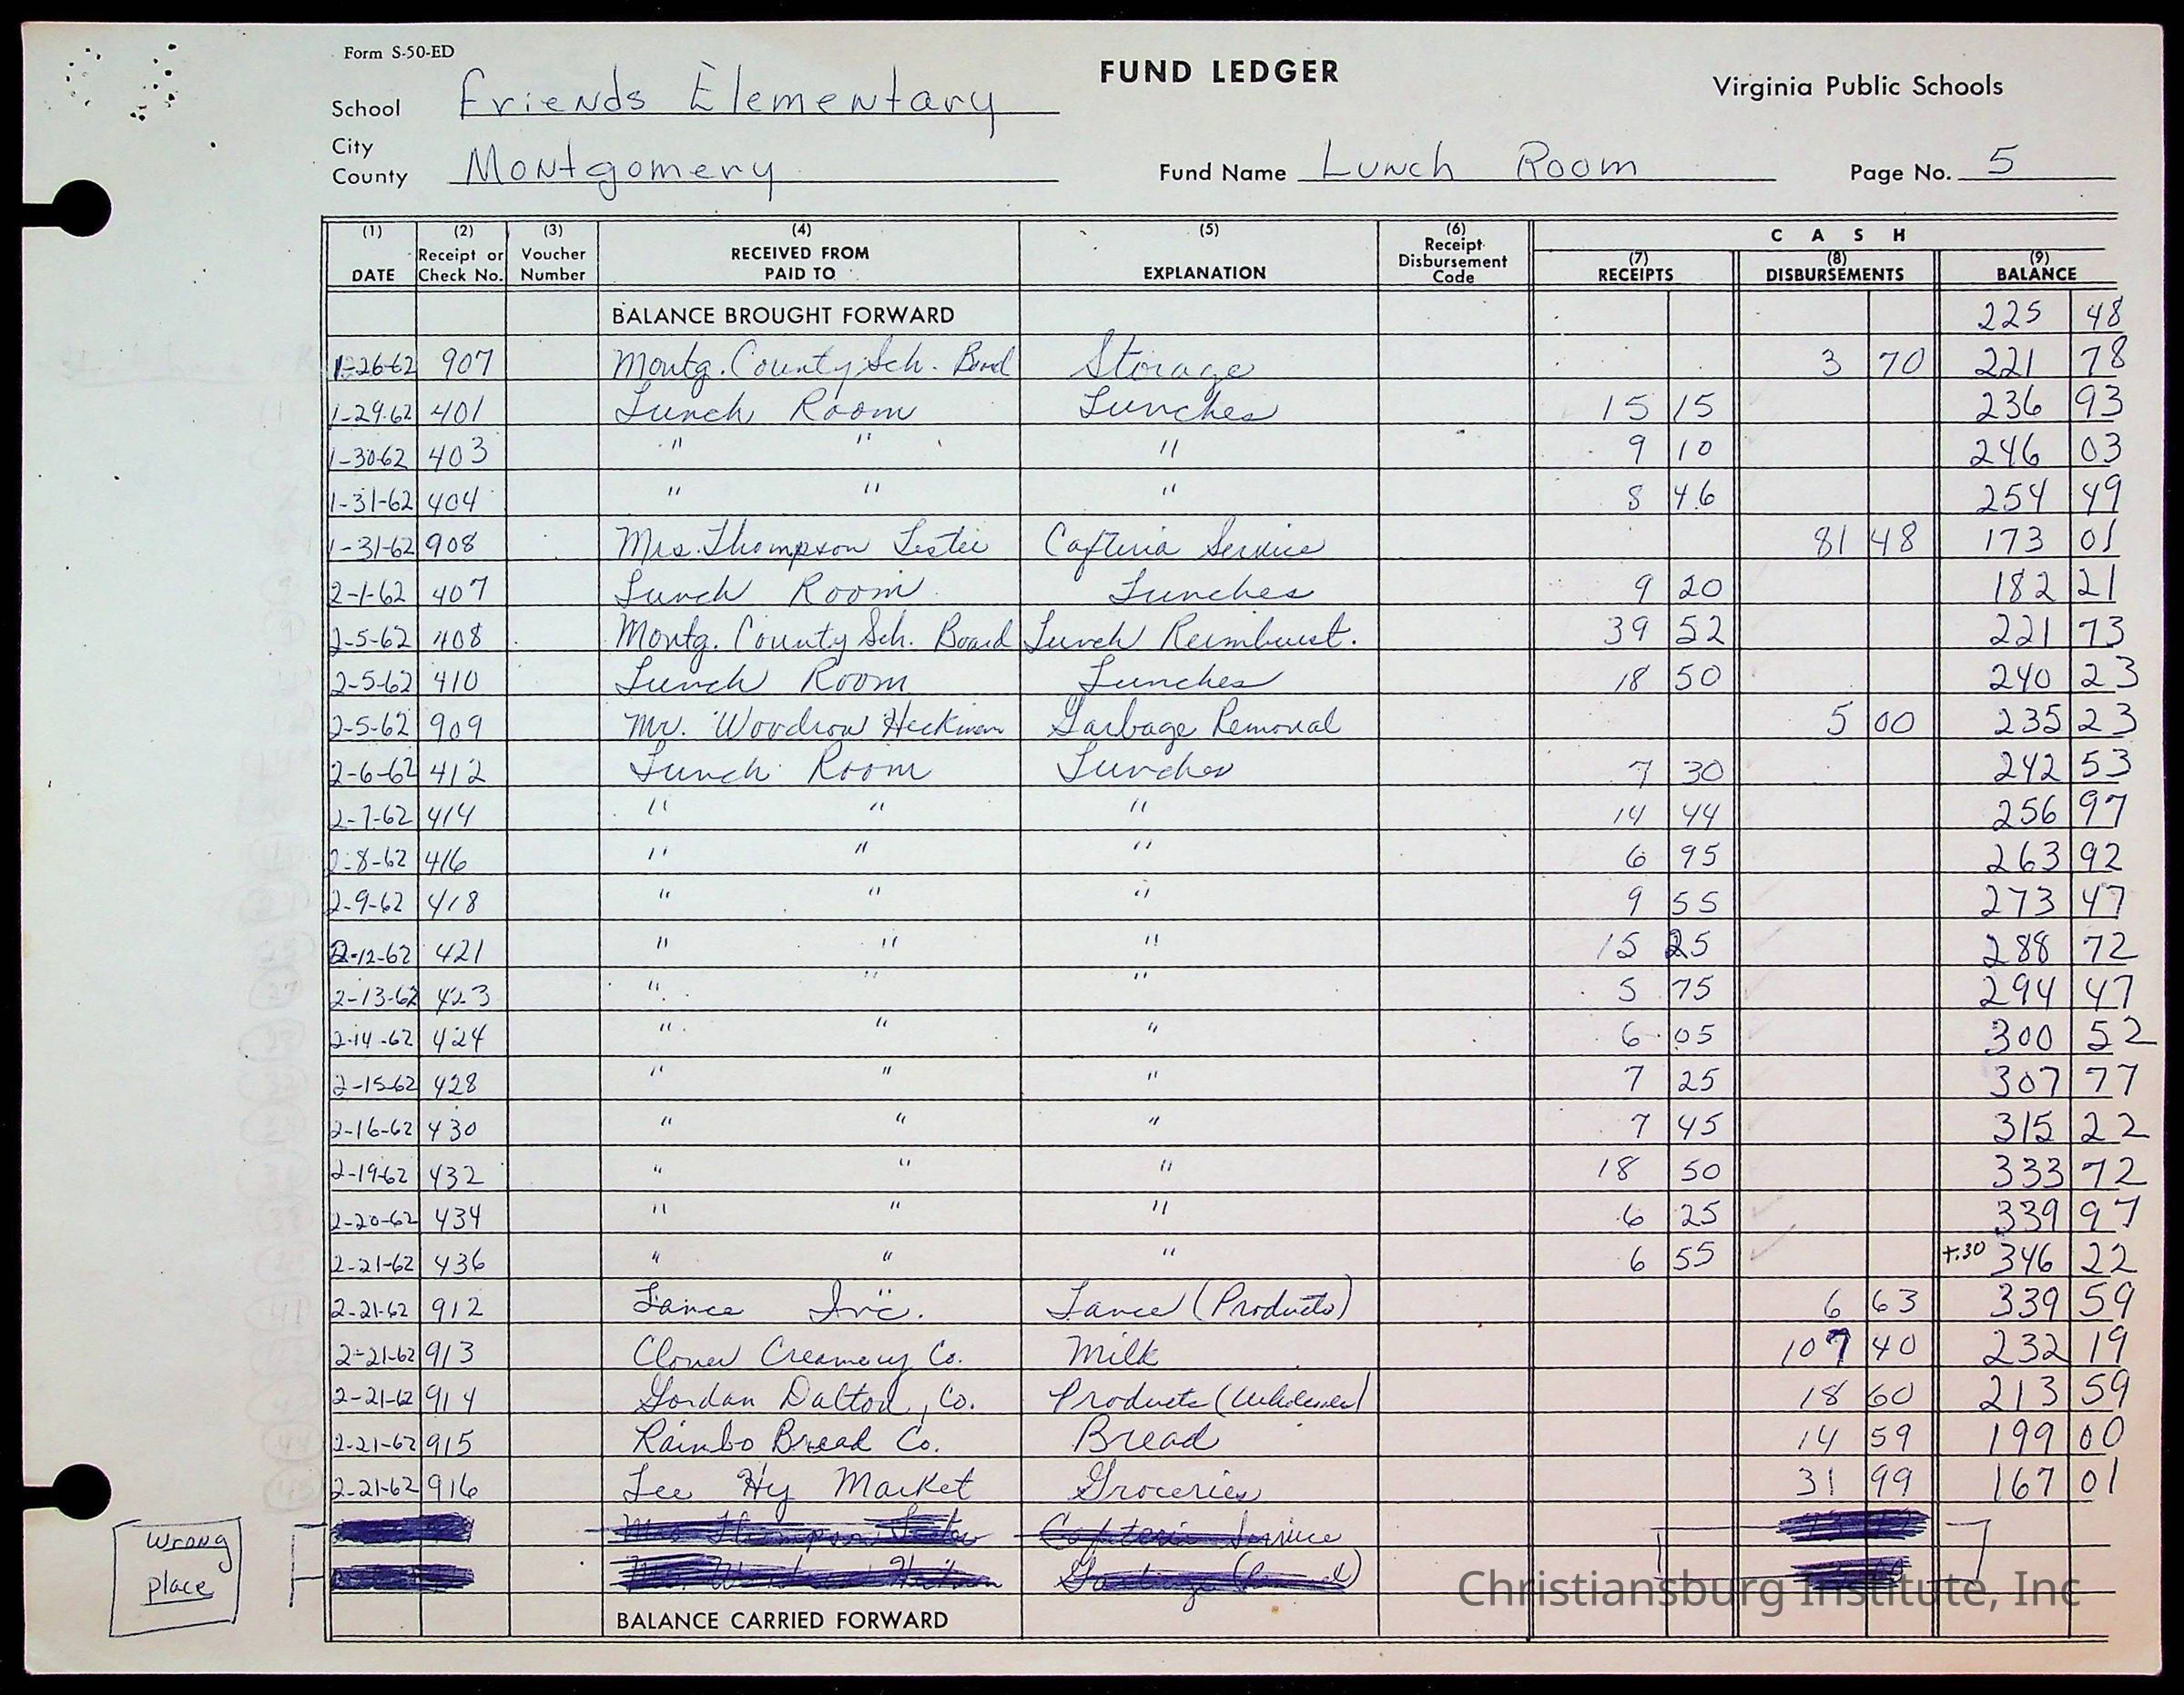 Form S-50-ED
FUND LEDGER
Virginia Public Schools
School Friends Elementary
City
County Montgomery
Fund Name Lunch Room
Page No. 5
(1) DATE (2) Receipt or Check No. (3) Voucher Number (4) RECEIVED FROM PAID TO (5) EXPLANATION (6) Receipt Disbursement Code CASH (7) RECEIPTS (8) DISBURSEMENTS (9) BALANCE
BALANCE BROUGHT FORWARD 225 48
1-26-62 907 Montg. County Sch. Bord Storage 3 70 221 78
1-29-62 401 Lunch Room Lunches 15 15 236 93
1-30-62 403 " " " 9 10 246 03
1-31-62 404 " " " 8 46 254 49
1-31-62 908 Mrs. Thompson Lester Cafteria Service 81 48 173 01
2-1-62 407 Lunch Room Lunches 9 20 182 21
2-5-62 408 Montg. County Sch. Board Lunch Reimburst. 39 52 221 73
2-5-62 410 Lunch Room Lunches 18 50 240 23
2-5-62 909 Mr. Woodrow Heckman Garbage Removal 5 00 235 23
2-6-62 412 Lunch Room Lunches 7 30 242 53
2-7-62 414 " " " 14 44 256 97
2-8-62 416 " " " 6 95 263 92
2-9-62 418 " " " 9 55 273 47
2-12-62 421 " " " 15 25 288 72
2-13-62 423 " " " 5 75 294 47
2-14-62 424 " " " 6 05 300 52
2-15-62 428 " " " 7 25 307 77
2-16-62 430 " " " 7 45 315 22
2-19-62 432 " " " 18 50 333 72
2-20-62 434 " " " 6 25 339 97
2-21-62 436 " " " 6 55 +.30 346 22
2-21-62 912 Lance Inc. Lance (Products) 6 63 339 59
2-21-62 913 Clover Creamery Co. Milk 107 40 232 19
2-21-62 914 Gordan Dalton, Co. Products 18 60 213 59
2-21-62 915 Rainbo Bread Co. Bread 14 59 199 00
2-21-62 916 Lee Hy Market Groceries 31 99 167 01
Wrong place
Cafteria Service
BALANCE CARRIED FORWARD
Christiansburg Institute, Inc